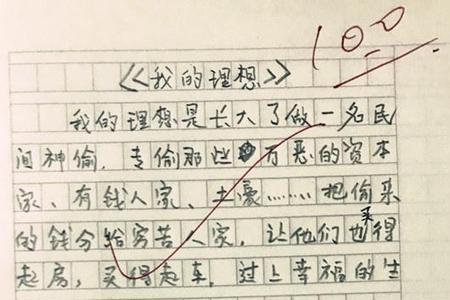 100
《我的理想》
我的理想是长大了做一名民
间神偷，专偷那些万恶的资本
家、有钱人家、土豪……把偷来
的钱分给穷苦人家，让他们也买得
起房，买得起车，过上幸福的生